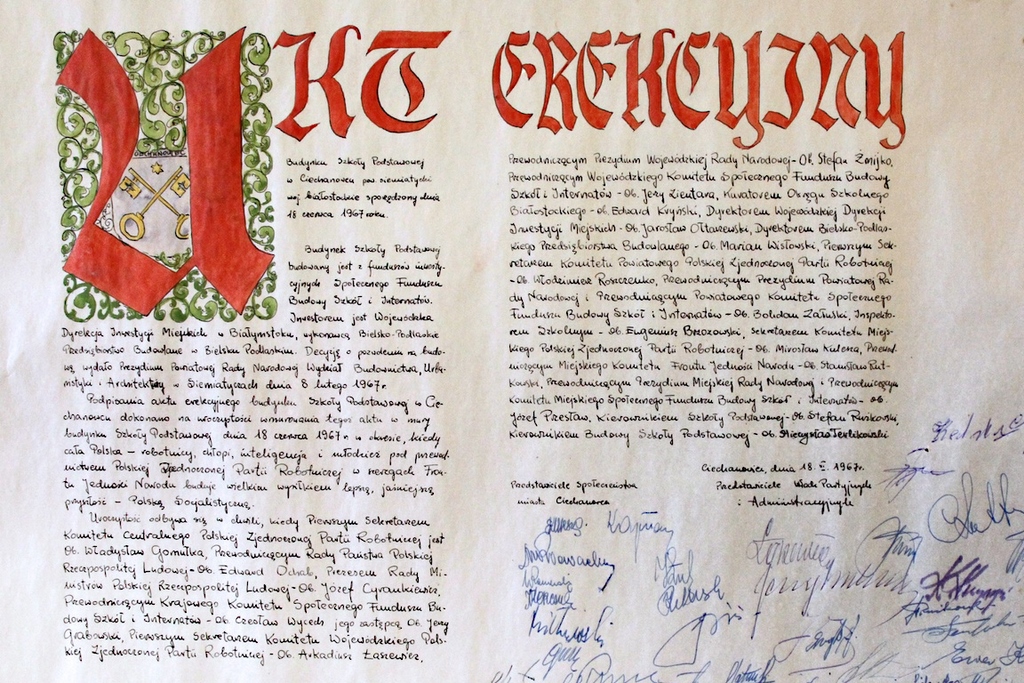 AKT EREKCYJNY
CIECHANOWIEC
Budynku Szkoły Podstawowej
w Ciechanowcu pow. siemiatycki
woj. białostockie sporządzony dnia
18 czerwca 1967 roku.
Budynek Szkoły Podstawowej
budowany jest z funduszów inwesty-
cyjnych Społecznego Funduszu
Budowy Szkół i Internatów.
Inwestorem jest Wojewódzka
Dyrekcja Inwestycji Miejskich w Białymstoku, wykonawcą Bielsko-Podlaskie
Przedsiębiorstwo Budowlane w Bielsku Podlaskim. Decyzję o pozwoleniu na budo-
wę wydało Prezydium Powiatowej Rady Narodowej Wydział Budownictwa, Urba-
nistyki i Architektury w Siemiatyczach dnia 8 lutego 1967r.
Podpisania aktu erekcyjnego budynku Szkoły Podstawowej w Cie-
chanowcu dokonano na uroczystości wmurowania tegoż aktu w mury
budynku Szkoły Podstawowej dnia 18 czerwca 1967r. w okresie, kiedy
cała Polska - robotnicy, chłopi, inteligencja i młodzież pod przewod-
nictwem Polskiej Zjednoczonej Partii Robotniczej w szeregach Fron-
tu Jedności Narodu buduje wielkim wysiłkiem lepszą, jaśniejszą
przyszłość - Polskę Socjalistyczną.
Uroczystość odbywa się w chwili, kiedy Pierwszym Sekretarzem
Komitetu Centralnego Polskiej Zjednoczonej Partii Robotniczej jest
Ob. Władysław Gomułka, Przewodniczącym Rady Państwa Polskiej
Rzeczpospolitej Ludowej - Ob. Edward Ochab, Prezesem Rady Mi-
nistrów Polskiej Rzeczpospolitej Ludowej - Ob. Józef Cyrankiewicz,
Przewodniczącym Krajowego Komitetu Społecznego Funduszu Bu-
dowy Szkół i Internatów - Ob. Czesław Wycech jego zastępcą Ob. Jerzy
Grabowski, Pierwszym Sekretarzem Komitetu Wojewódzkiego Pols-
kiej Zjednoczonej Partii Robotniczej - Ob. Arkadiusz Łaszewicz,
Przewodniczącym Prezydium Wojewódzkiej Rady Narodowej - Ob. Stefan Żmijko,
Przewodniczącym Wojewódzkiego Komitetu Społecznego Funduszu Budowy
Szkół i Internatów - Ob. Jerzy Zientara, Kuratorem Okręgu Szkolnego
Białostockiego - Ob. Edward Kryński, Dyrektorem Wojewódzkiej Dyrekcji
Inwestycji Miejskich - Ob. Jarosław Ołtarzewski, Dyrektorem Bielsko-Podlas-
kiego Przedsiębiorstwa Budowlanego - Ob. Marian Wisłowski, Pierwszym Sek-
retarzem Komitetu Powiatowego Polskiej Zjednoczonej Partii Robotniczej
- Ob. Włodzimierz Roszczenko, Przewodniczącym Prezydium Powiatowej Ra-
dy Narodowej i Przewodniczącym Powiatowego Komitetu Społecznego
Funduszu Budowy Szkół i Internatów - Ob. Bohdan Załuski, Inspekto-
rem Szkolnym - Ob. Eugeniusz Brzozowski, Sekretarzem Komitetu Miejs-
kiego Polskiej Zjednoczonej Partii Robotniczej - Ob. Mirosław Kulesza, Przewod-
niczącym Miejskiego Komitetu Frontu Jedności Narodu - Ob. Stanisław Rut-
kowski, Przewodniczącym Prezydium Miejskiej Rady Narodowej i Przewodniczącym
Komitetu Miejskiego Społecznego Funduszu Budowy Szkół i Internatów - Ob.
Józef Przesław, Kierownikiem Szkoły Podstawowej - Ob. Stefan Ruskowski,
Kierownikiem Budowy Szkoły Podstawowej - Ob. Mieczysław Terlikowski
Ciechanowiec, dnia 18.VI.1967r.
Przedstawiciele Społeczeństwa
miasta Ciechanowca
Przedstawiciele Władz Partyjnych
i Administracyjnych